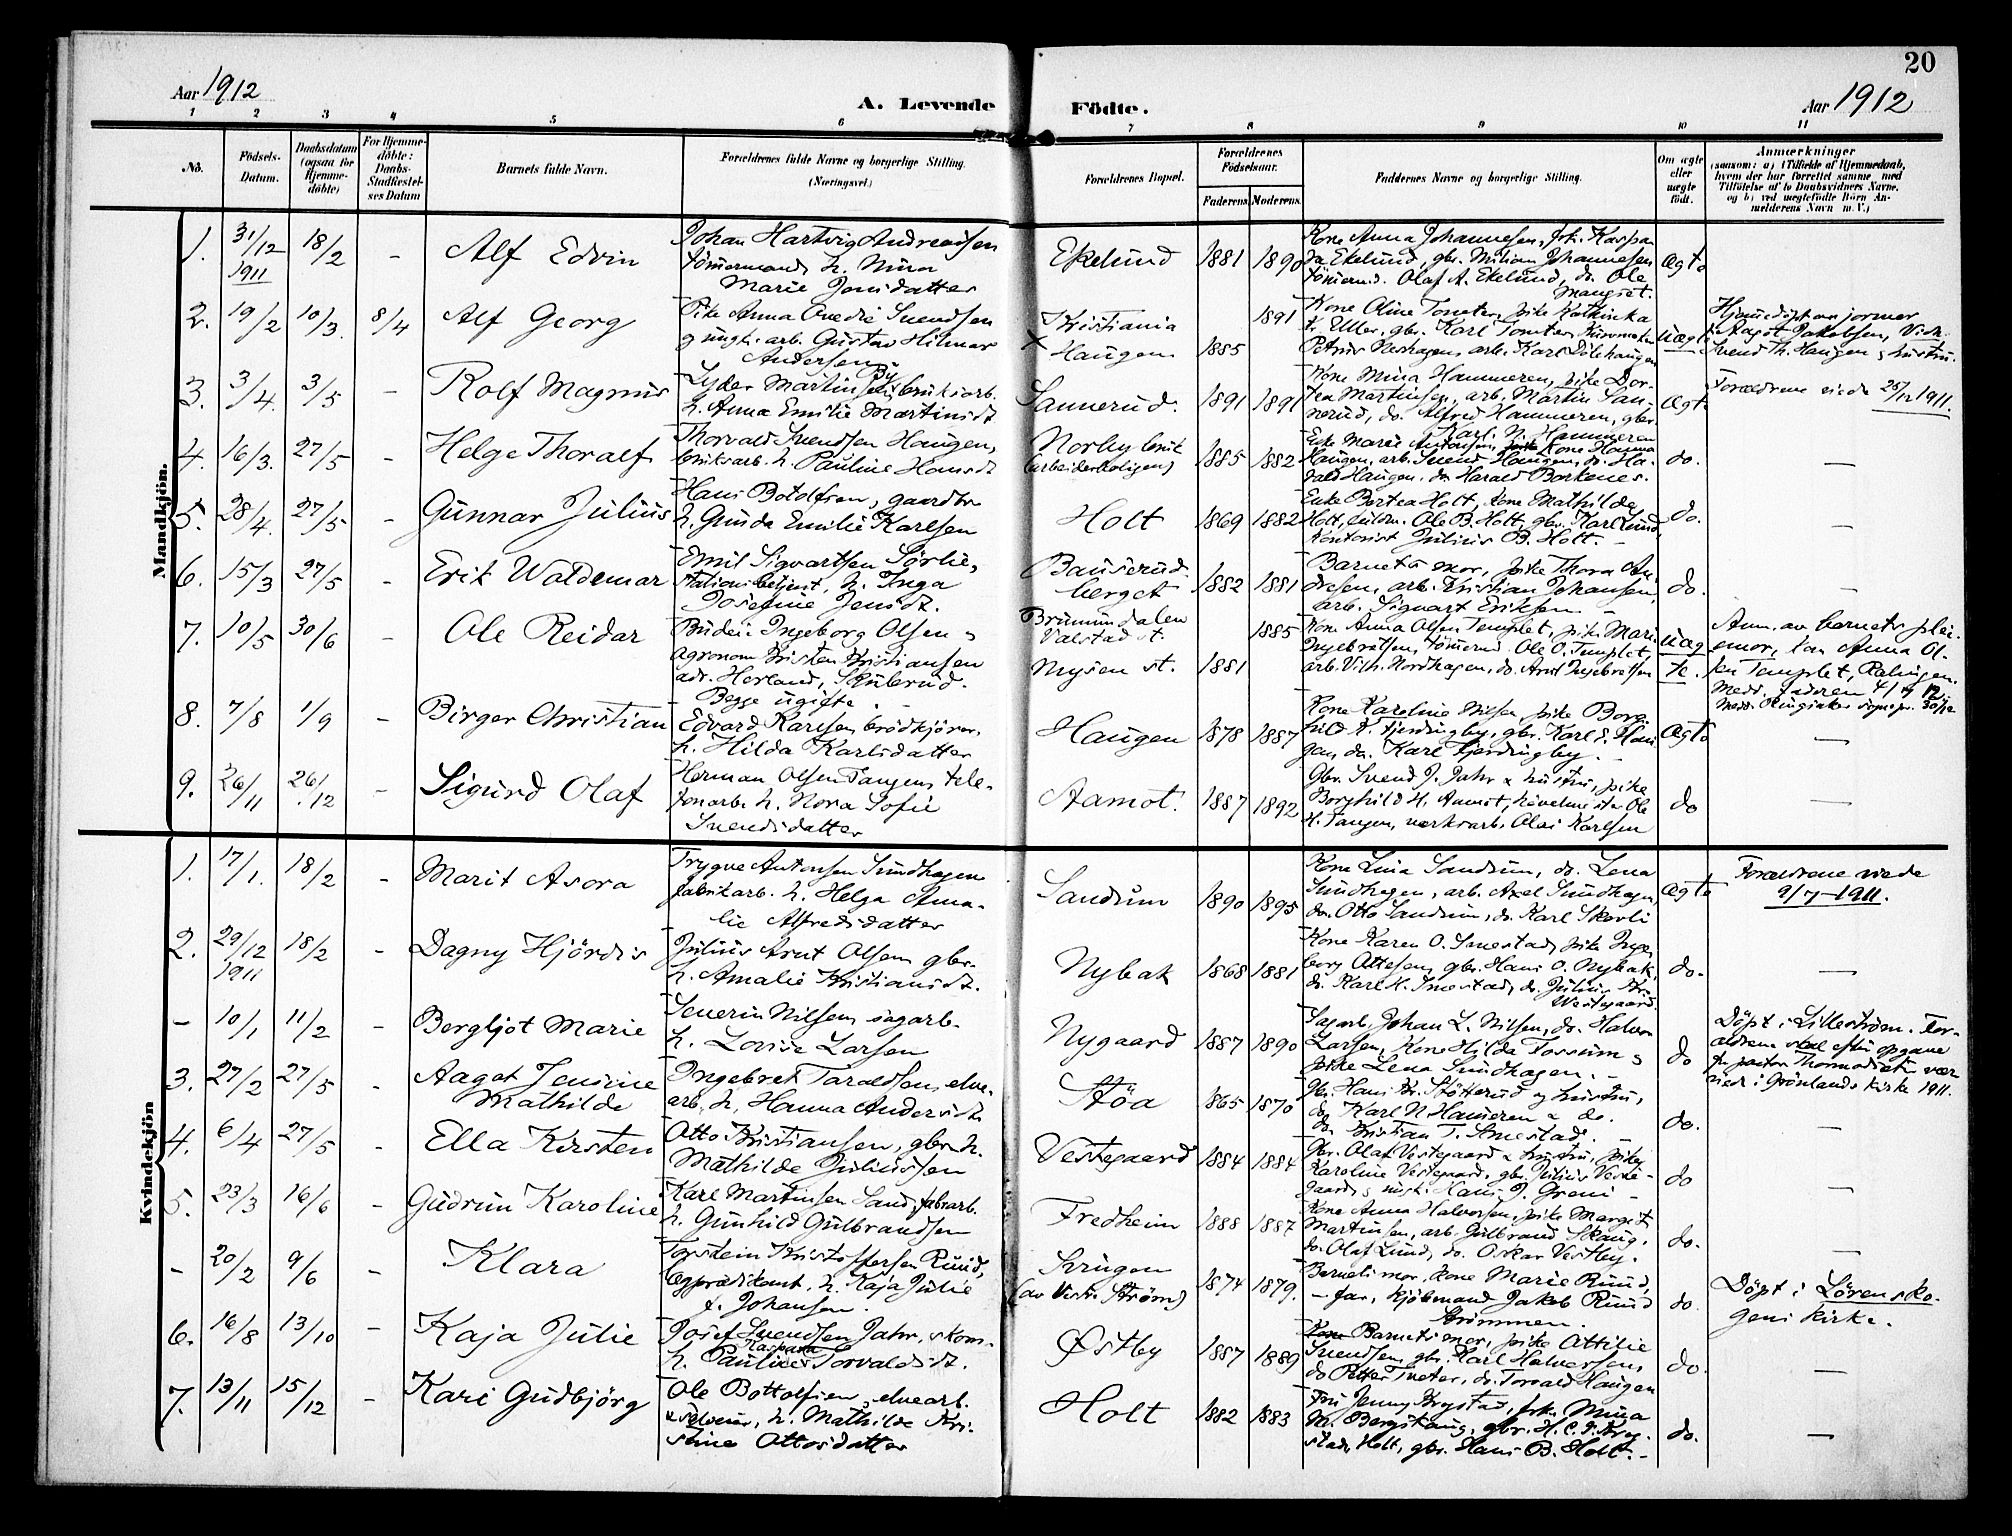 20
Aar 1912
A. Levende Födte.
Aar 1912
1 2 3 4 5 6 7 8 9 10 11
No.
Födsels-Datum.
Daabsdatum (ogsaa for Hjemme-döbte)
For Hjemme-döbte: Daabs-Stadfæstel-ses Datum
Barnets fulde Navn.
Forældrenes fulde Navne og borgerlige Stilling. (Næringsvei.)
Forældrenes Bopæl.
Forældrenes Födselsaar.
Faderens. Moderens.
Faddernes Navne og borgerlige Stilling.
Om ægte eller uægte födt.
Anmærkninger
(saasom: a) i Tilfælde af Hjemmedaab, hvem der har forrettet samme med Tilföielse af to Daabsvidners Navne, og b) ved uægtefödte Börn Anmelderens Navn m. V.)
Mandkjön.
1. 31/12 1911 18/2 - Alf Edvin
Johan Hartvig Andreassen
tömmermand, h. Nina
Marie Jonsdatter
Ekelund 1881 1890
Kone Anna Johannesen,
Ekelund, gbr. Johannesen
tömmerm. Olaf A. Ekelund, do. Ole
Mangset.
Ægte
2. 19/2 10/3 8/4 Alf Georg
Pike Anna Svendsen
og ungk. arb. Gustav Hilmar
Andersen
Kristiania
x Haugen 1885 1891
Kone Oline Tomter, pike Kathinka
Uller, gbr. Karl Tomter,
arb. Karl
Uægte
Hjemmedöpt av jormor
Aagot Jakobsen,
Svend Th. Haugen og hustru.
3. 3/4 3/5 - Rolf Magnus
Lyder Martinsen By, bruksarb.
h. Anna Emilie Martinsdt.
Sannerud. 1891 1891
Kone Mina Hammeren, pike Dor-
tea Martinsen, arb. Martin San-
nerud, do. Alfred Hammeren, gbr.
Karl N. Hammeren
Ægte
Forældrene viede 25/12 1911.
4. 16/3. 27/5 - Helge Thoralf
Thorvald Svendsen Haugen,
bruksarb. h. Pauline Hansdt
Norby bruk
(arbeiderboligen) 1885 1882
Enke Marie Antonsen, Kone Hanna
Haugen, arb. Svend Haugen, do. Ha-
rald Haugen, do. Harald Borkenes.
do. —
5. 28/4. 27/5 - Gunnar Julius
Hans Botolfsen, gaardbr
h. Gunda Emilie Karlsen
Holt 1869 1882
Enke Bertea Holt, Kone Mathilde
Holt, Ole B. Holt, gbr. Karl Lund,
Kontorist Julius B. Holt. -
do. —
6. 15/3 27/5 - Erik Waldemar
Emil Sigvartsen Sörlie,
stationsbetjent, h. Inga
Josefine Jensdt.
Bauserud-
berget 1882 1881
Barnets mor, pike Thora An-
dresen, arb. Kristian Johansen,
arb. Sigvart Eriksen -
do. —
7. 10/5 30/6 Ole Reidar
Budeie Ingeborg Olsen,
agronom Kristen Kristiansen
adr. Herland, Skulerud.
Begge ugifte.
Brumunddalen
Valstad st.
Mysen st. 1881 1885
Kone Anna Olsen Templet, pike Mari
Ingebretsen, tömmerm. Ole O. Templet,
arb. Vilh. Nordhagen, do. Arnt Ingebretsen
uæg-
te.
Anm. av barnets plei-
emor, kone Anna Ol-
sen Templet, Rælingen.
Medd. faderen
Medd. Ringsaker sogne
8. 7/8 1/9 - Birger Christian
Edvard Karlsen brödkjörer,
h. Hilda Karlsdatter
Haugen 1878 1887
Kone Karoline Nilsen pike Borg-
hild K. Fjerdingby, gbr. Karl E. Hau-
gen, do. Karl Fjerdingby. -
Ægte —
9. 26/11 26/12 - Sigurd Olaf
Herman Olsen Tangen, tele-
fonarb. h. Nora Sofie
Svendsdatter
Aamot. 1887 1892
Gbr. Svend J. Jahr & hustru, pike
Borghild H. Aamot, hövelmester Ole
H. Tangen, verksarb. Olai Karlsen
do —
Kvindekjön
1. 17/1. 18/2 - Marit Asora
Trygve Antonsen Sundhagen
fabrikarb. h. Helga Ama-
lie Alfredsdatter
Sandum 1890 1895
Kone Lina Sandum, do. Lena
Sundhagen, arb. Axel Sundhagen,
do. Otto Sandum, do. Karl Skovli
Ægte
Forældrene viede
9/7-1911.
2. 29/12 1911 18/2 - Dagny Hjördis
Julius Arnt Olsen gbr.
h. Amalie Kristiansdt.
Nybak 1868 1881
Kone Karen O. Smestad, pike Inge-
borg Ottesen, gbr. Hans O. Nybak,
do. Karl H. Smestad, do. Julius Kr.
Vestgaard.
do. —
- 10/1 11/2 Bergljot Marie
Severin Nilsen, sagarb.
h. Lovise Larsen
Nygaard 1887 1890
Sagarb. Johan L. Nilsen, do. Halvor
Larsen, Kone Hilda Fossum,
pike Lena Sundhagen. -
do
Döpt i Lilleström. For-
ældrene skal efter opgave
fr. pastor Thormodsæter vær
viede i Grönlands kirke 1911.
3. 27/2 27/5 - Aagot Jensine
Mathilde
Ingebret Taraldsen, elve-
arb. h. Hanna Andersdt.
Stöa 1865 1870
Gbr. Hans Kr. Stötterud og hustru,
do. Karl N. Hameren & do.
do. Kristian T. Smestad. -
do. —
4. 6/4 27/5 - Ella Kirsten
Otto Kristiansen, gbr. h.
Mathilde Juliussen
Vestgaard 1884 1884
Gbr. Olaf Vestgaard & hustru, pike
Karoline Vestgaard, gbr. Julius Vest-
gaard, ungk. Hans J. Greni -
do —
5. 23/3 16/6 - Gudrun Karoline
Karl Martinsen Sand, fabrarb.
h. Gunhild Gulbrandsen
Fredheim 1888 1887
Kone Anna Halvorsen, pike Margit
Martinsen, arb. Gulbrand Skaug,
do. Olaf Lund, do. Oskar Vestby.
do. —
- 20/2 9/6 - Klara
Torstein Kristoffersen Ruud,
lægprædikant, h. Kaja Julie
f. Johansen.
Krugen
(av Vestre Ström) 1874 1879.
Barnets mor, kone Marie Ruud,
- far, kjöbmand Jakob Ruud
Strömmen.
do.
Döpt i Lörensko-
gens kirke.
6. 16/8 13/10 - Kaja Julie
Josef Svendsen Jahr, skom.
h. Pauline Kaspara Torvaldsdt.
Østby 1887 1889
Barnets mor, pike Attilie
Svendsen, gbr. Karl Halvorsen,
do Petter Tveter, do. Torvald Haugen
do. —
7. 13/11 15/12 - Kari Gudbjörg
Ole Bottolfsen, elvearb.
& selveier, h. Mathilde Kri-
stine Ottosdatter
Holt 1882 1883
Fru Jenny Krogstad, frk. Mina
M. Bergskaug, gbr. H. C. J. Krog-
stad, Holt, gbr. Hans B. Holt. -
do. —